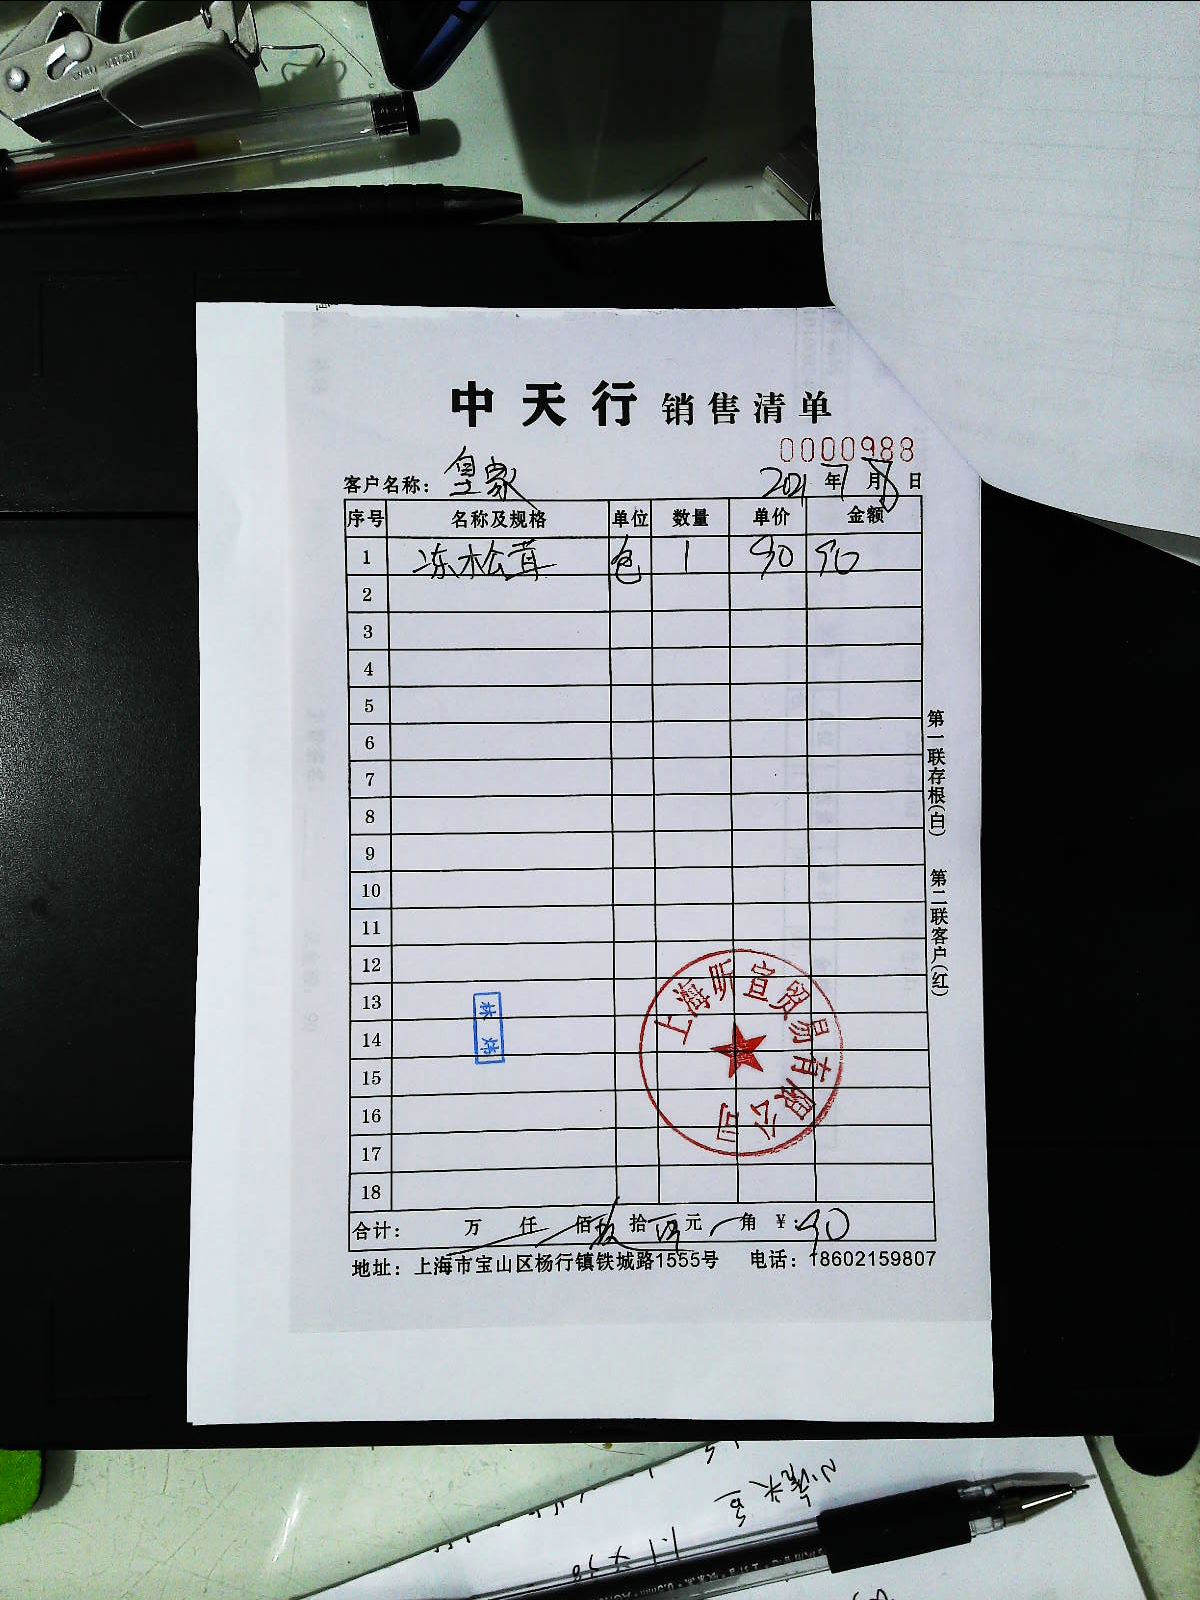 中天行 销售清单
0000988
客户名称: 皇家 2021年7月8日
序号 名称及规格 单位 数量 单价 金额
1 冻松茸 包 1 90 90
2
3
4
5
6
7
8
9
10
11
12
13
14
15
16
17
18
上海昕宣贸易有限公司
合计: 万 仟 佰 玖 拾 元 角 ¥:90
地址: 上海市宝山区杨行镇铁城路1555号 电话: 18602159807
第一联存根(白) 第二联客户(红)